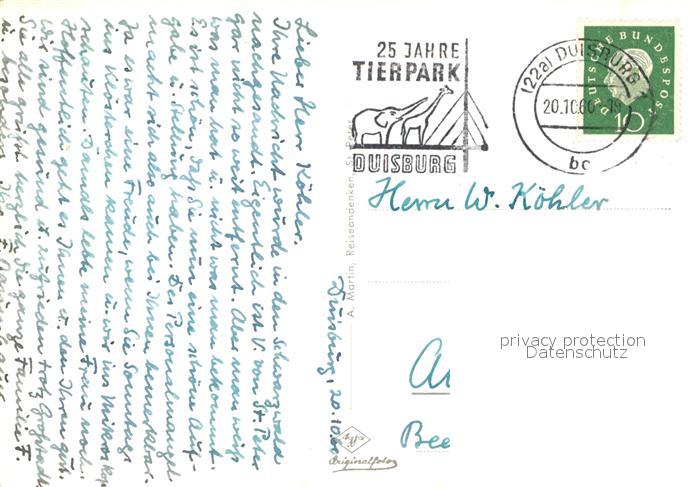 25 JAHRE
TIERPARK
DUISBURG
(22a) DUISBURG
20.10.60.-19
bc
DEUTSCHE BUNDESPOST
10
Herrn W. Köhler
privacy protection
Datenschutz
Bee
A. Martin, Reiseandenken, St. Peter
Agfa
Originalfoto
Duisburg, 20.10.60
Lieber Herr Köhler,
Ihre Nachricht wurde in den Schwarzwald
nachgesandt. Eigentlich ist V. von St. Peter
gar nicht so weit entfernt. Aber man weiß
was man hat u. nicht was man bekommt.
Es ist schön, daß Sie nun eine schöne Auf-
gabe u. Stellung haben. Der Personalmangel
macht sich also auch bei Ihnen bemerkbar.
Ja es war eine Freude, wenn Sie Sonntags
ins kamen u. wir ins Mikroskop
schauten. Damals lebte meine Frau noch.
Hoffentlich geht es Ihnen u. den Ihren gut.
Wir sind gesund u. zufrieden trotz Großstadt.
Sie alle grüßt herzlich die ganze Familie F.
u. besonders Ihr F.